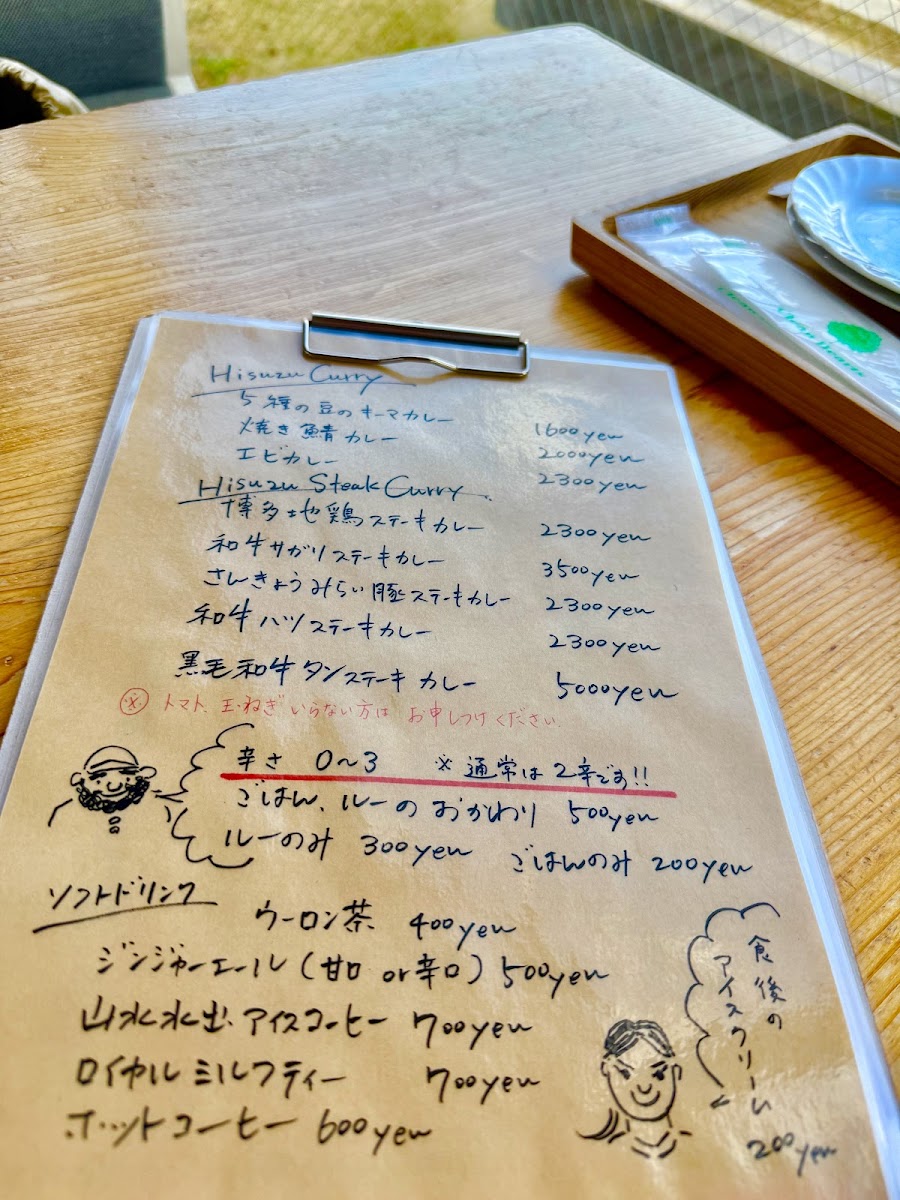 Hisuzu Curry
5種の豆のキーマカレー 1600yen
焼き鯖カレー 2000yen
エビカレー 2300yen
Hisuzu Steak Curry
博多地鶏ステーキカレー 2300yen
和牛サガリステーキカレー 3500yen
さんきょうみらい豚ステーキカレー 2300yen
和牛ハツステーキカレー 2300yen
黒毛和牛タンステーキカレー 5000yen
※ トマト、玉ねぎいらない方はお申しつけください。
辛さ 0〜3 ※通常は2辛です!!
ごはん、ルーのおかわり 500yen
ルーのみ 300yen ごはんのみ 200yen
ソフトドリンク
ウーロン茶 400yen
ジンジャーエール(甘口 or 辛口) 500yen
山水水出アイスコーヒー 700yen
ロイヤルミルクティー 700yen
ホットコーヒー 600yen
食後の
アイスクリーム
200yen